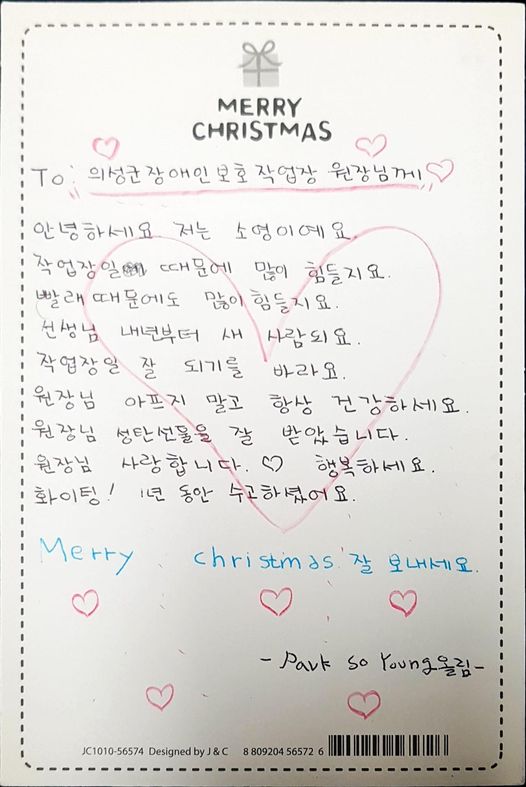 MERRY
CHRISTMAS
To: 의성군장애인보호작업장 원장님께
안녕하세요 저는 소영이예요.
작업장일 때문에 많이 힘들지요.
빨래때문에도 많이힘들지요.
선생님 내년부터 새 사람되요.
작업장일 잘 되기를 바라요.
원장님 아프지 말고 항상 건강하세요.
원장님 성탄선물을 잘 받았습니다.
원장님 사랑합니다. ♡ 행복하세요.
화이팅! 1년 동안 수고하셨어요.
Merry christmas 잘 보내세요.
- Park so Young올림-
JC1010-56574 Designed by J & C 8 809204 56572 6